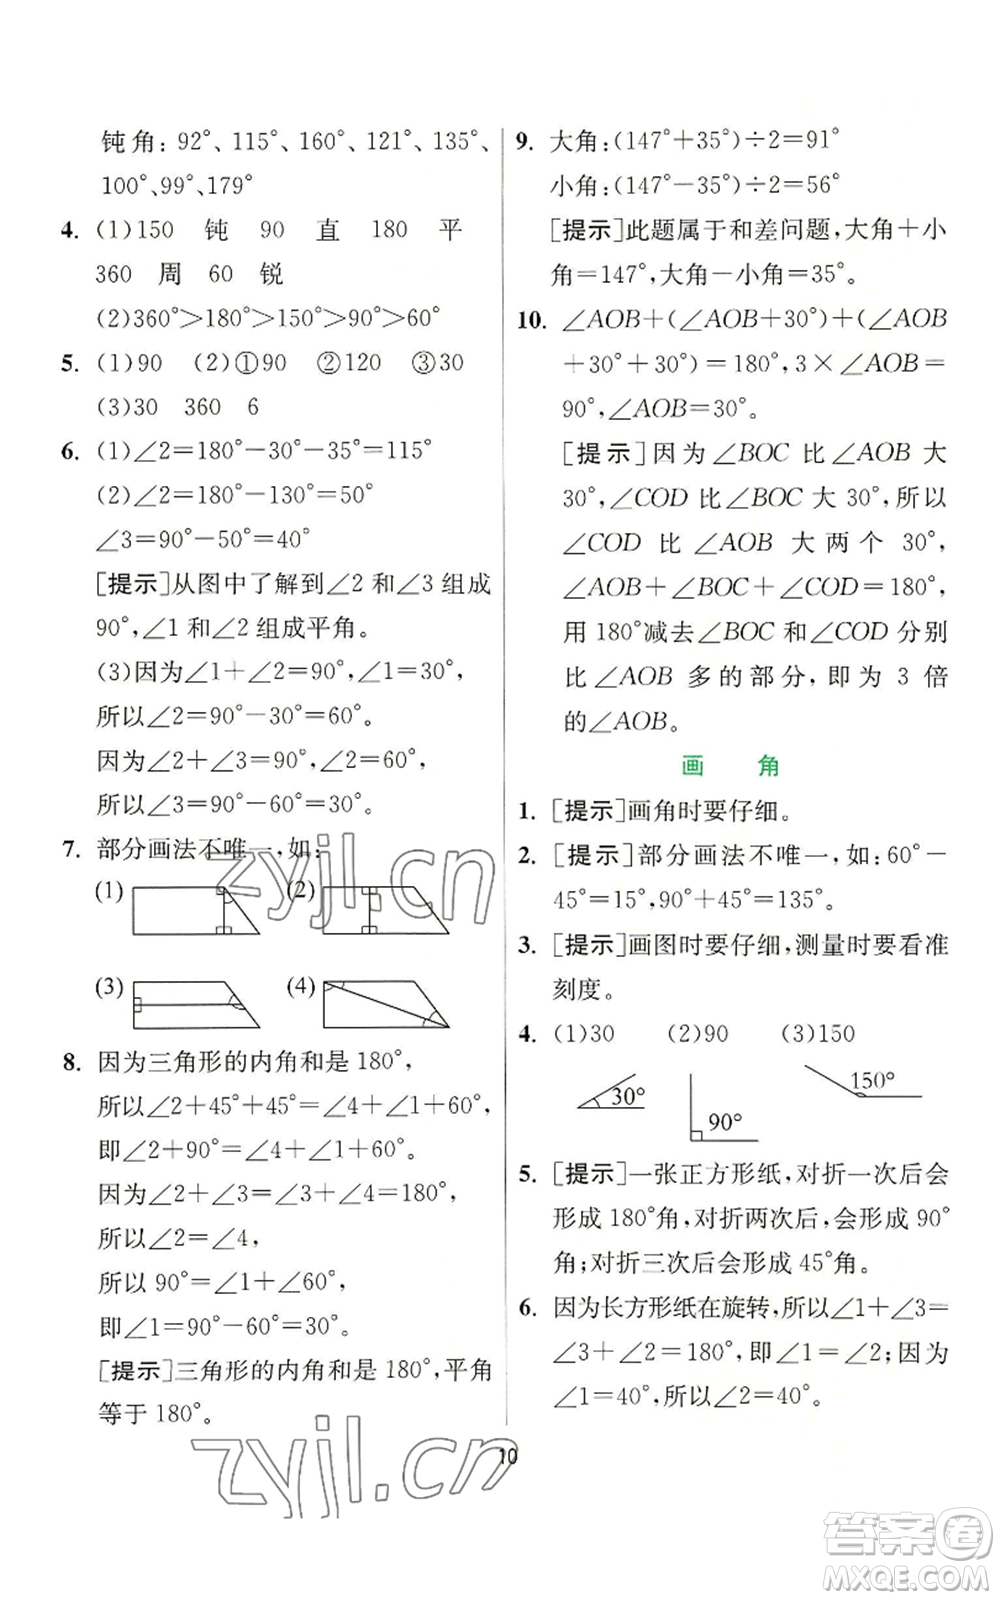 钝角:92°、115°、160°、120°、135°、
100°、99°、179°
4. (1)150 钝 90 直 180 平
360 周 60 锐
(2)360°>180°>150°>90°>60°
5. (1)90 (2)①90 ②120 ③30
(3)30 360 6
6. (1)∠2=180°-30°-35°=115°
(2)∠2=180°-130°=50°
∠3=90°-50°=40°
[提示]从图中了解到∠2和∠3组成
90°,∠1和∠2组成平角。
(3)因为∠1+∠2=90°,∠1=30°,
所以∠2=90°-30°=60°。
因为∠2+∠3=90°,∠2=60°,
所以∠3=90°-60°=30°。
7. 部分画法不唯一,如:
(1) (2)
(3) (4)
8. 因为三角形的内角和是180°,
所以∠2+45°+45°=∠4+∠1+60°,
即∠2+90°=∠4+∠1+60°。
因为∠2+∠3=∠3+∠4=180°,
所以∠2=∠4,
所以90°=∠1+60°,
即∠1=90°-60°=30°。
[提示]三角形的内角和是180°,平角
等于180°。
9. 大角:(147°+35°)÷2=91°
小角:(147°-35°)÷2=56°
[提示]此题属于和差问题,大角+小
角=147°,大角-小角=35°。
10. ∠AOB+(∠AOB+30°)+(∠AOB
+30°+30°)=180°,3×∠AOB=
90°,∠AOB=30°。
[提示]因为∠BOC比∠AOB大
30°,∠COD比∠BOC大30°,所以
∠COD比∠AOB大两个30°,
∠AOB+∠BOC+∠COD=180°,
用180°减去∠BOC和∠COD分别
比∠AOB多的部分,即为3倍
的∠AOB。
画 角
1. [提示]画角时要仔细。
2. [提示]部分画法不唯一,如:60°-
45°=15°,90°+45°=135°。
3. [提示]画图时要仔细,测量时要看准
刻度。
4. (1)30 (2)90 (3)150
30° 90° 150°
5. [提示]一张正方形纸,对折一次后会
形成180°角,对折两次后,会形成90°
角;对折三次后会形成45°角。
6. 因为长方形纸在旋转,所以∠1+∠3=
∠3+∠2=180°,即∠1=∠2;因为
∠1=40°,所以∠2=40°。
10
zyjl.cn
zyjl.cn
答案圈
MXQE.COM